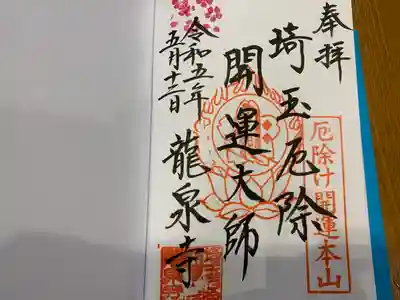 奉拝
厄除け開運本山
埼玉厄除
開運大師
龍泉寺
令和五年
五月十三日